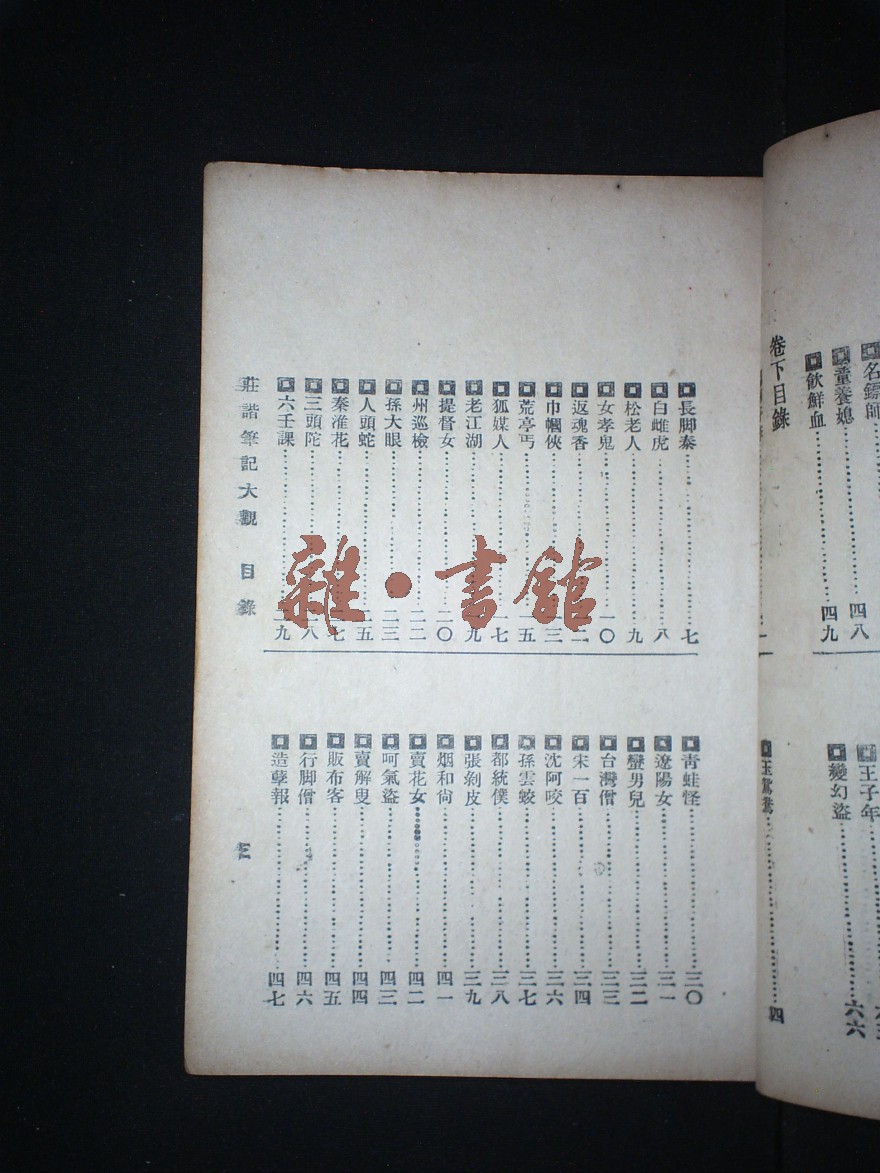 名鏢師
童養媳 四八
飲鮮血 四九
王子年
變幻盜 六六
卷下目錄
玉鴛鴦 四
長脚泰 七
白雌虎 八
松老人 九
女孝鬼 一〇
返魂香 一二
巾幗俠 一三
荒亭丐 一五
狐媒人 一七
老江湖 一九
提督女 二〇
州巡檢 二二
孫大眼 二三
人頭蛇 二五
秦淮花 二七
三頭陀 二八
六壬課 二九
青蛙怪 三〇
遼陽女 三一
蠻男兒 三二
台灣僧 三三
宋一百 三四
沈阿咬 三六
孫雲蛟 三七
都統僕 三八
張剝皮 三九
烟和尙 四一
賣花女 四二
呵氣盜 四三
賣解叟 四四
販布客 四五
行脚僧 四六
造孽報 四七
莊諧筆記大觀 目錄
雜·書館